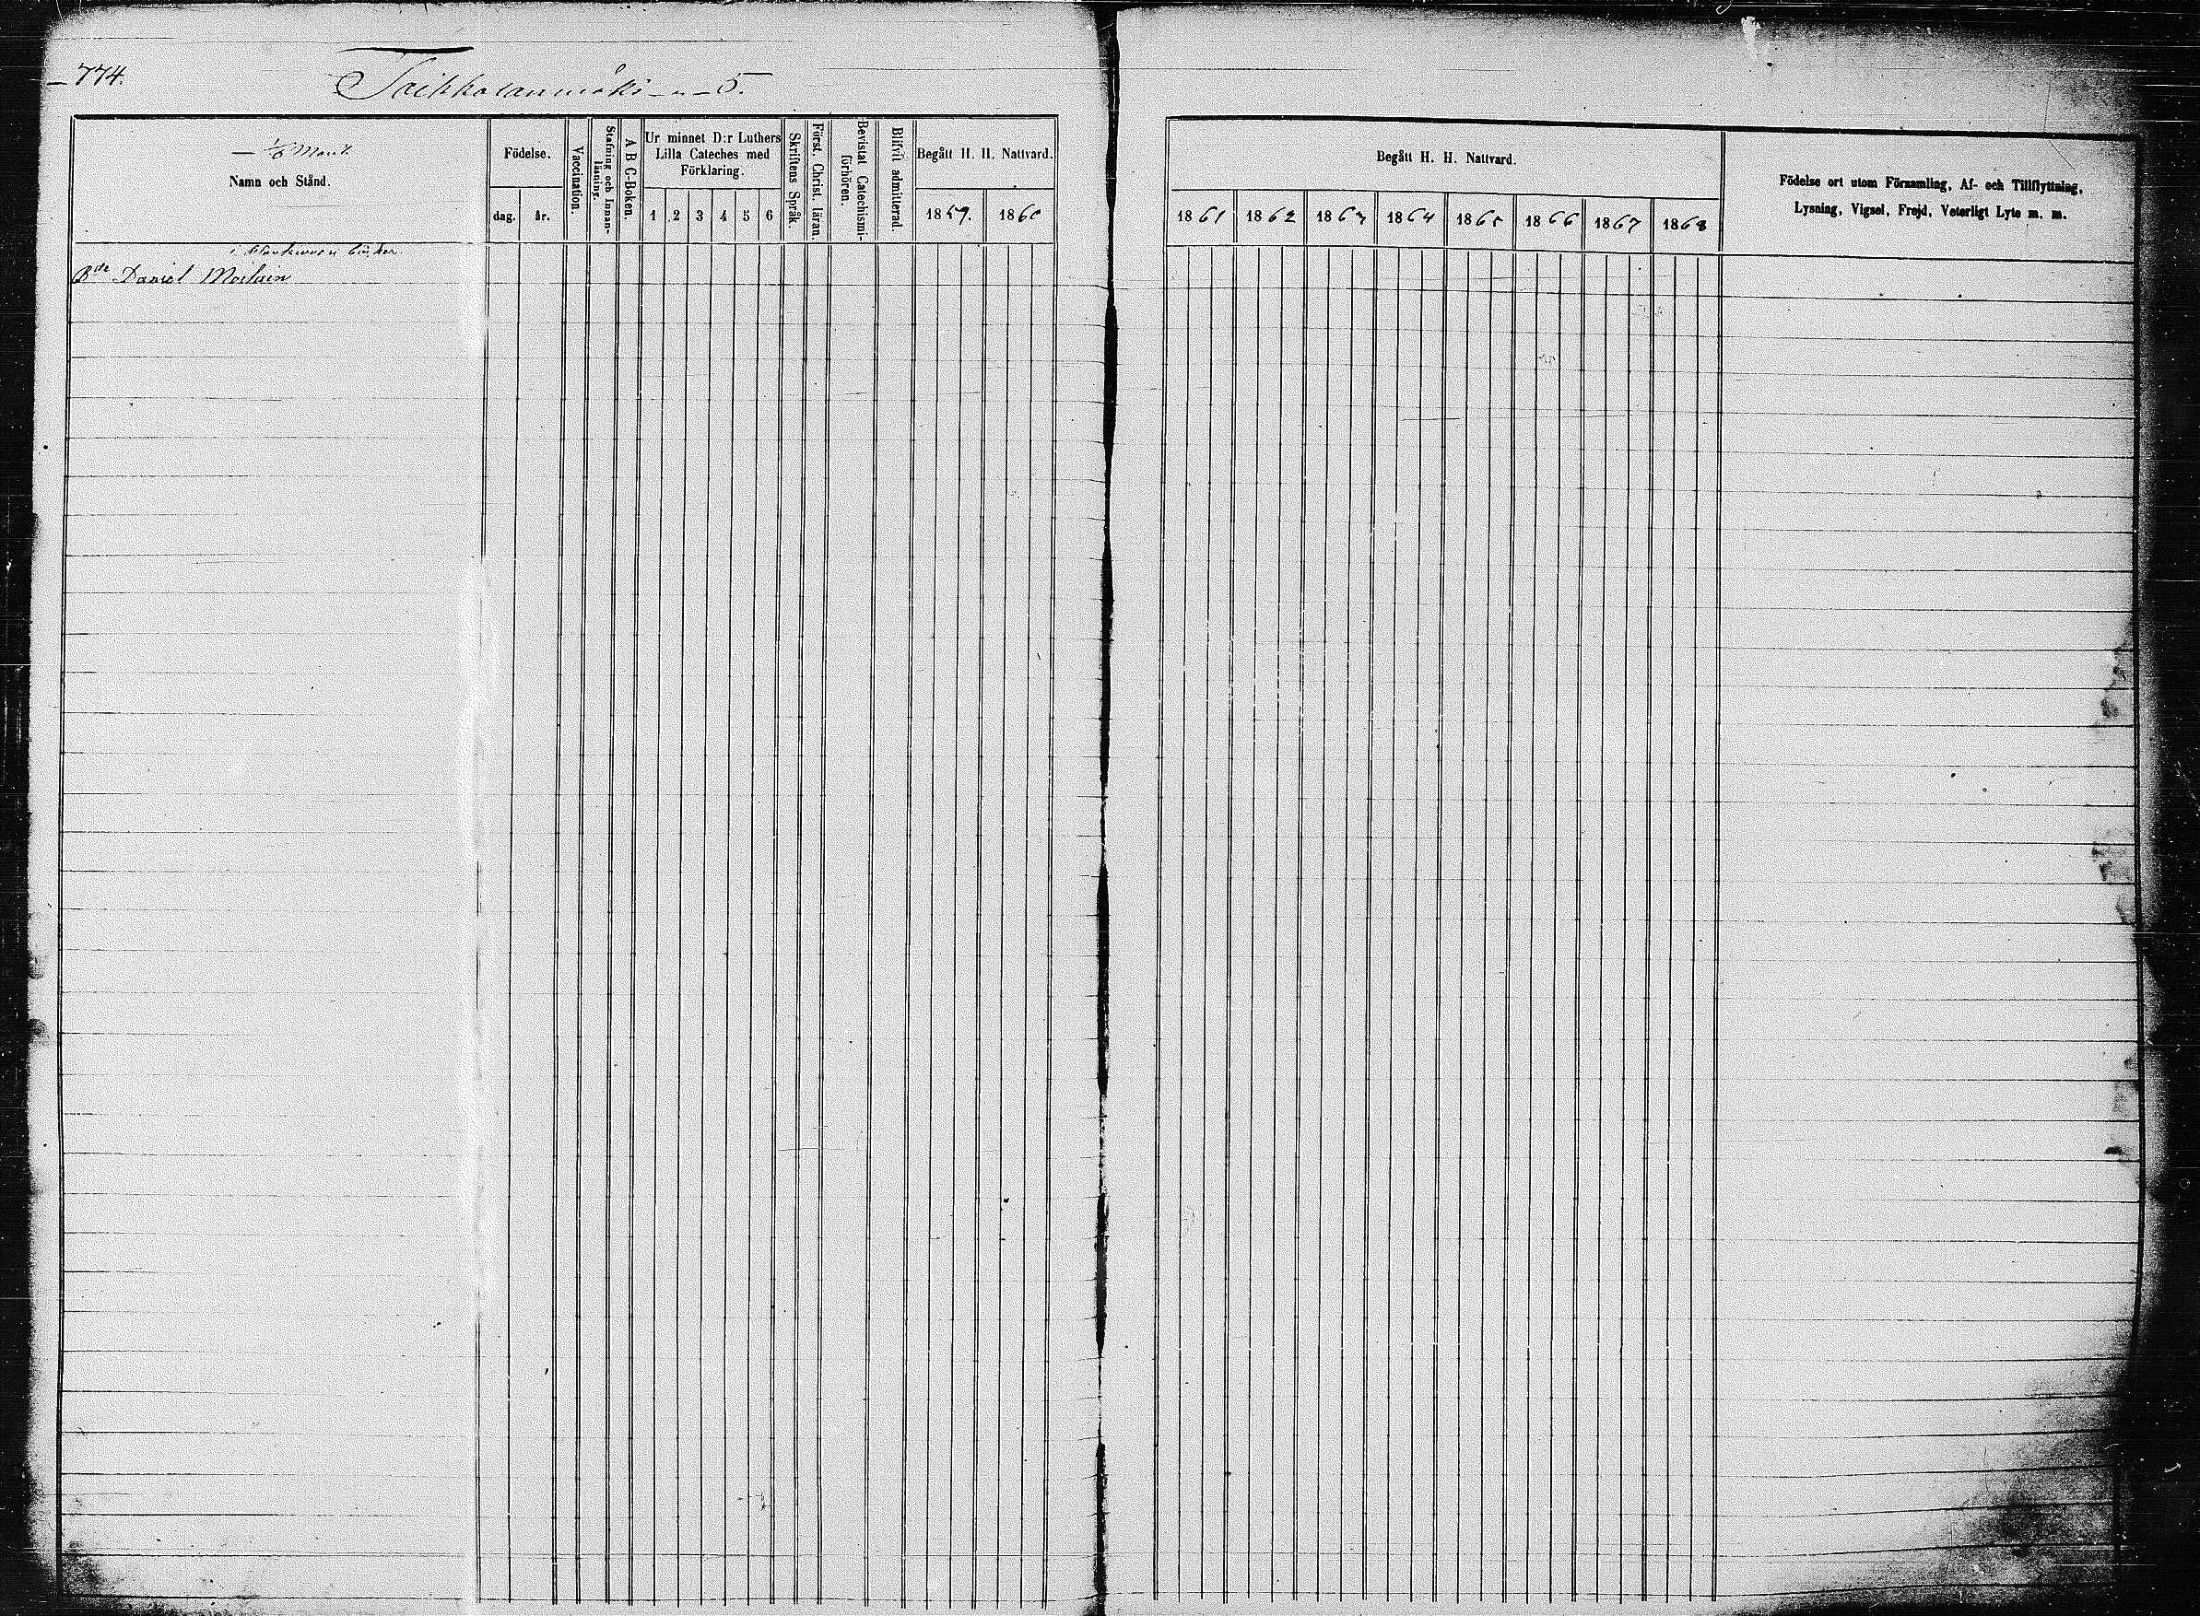 774.
Taikkolanmäki - „ - 5.
1/6 Mant.
Namn och Stånd.
Födelse.
dag. år.
Vaccination.
Stafning och Innanläsning.
A B C-Boken.
Ur minnet D:r Luthers
Lilla Cateches med
Förklaring.
1 2 3 4 5 6
Skriftens Språk.
Först. Christ. läran.
Bevistat Catechismi-
förhören.
Blifvit admitterad.
Begått H. H. Nattvard.
1859. 1860
i
Bde Daniel
Begått H. H. Nattvard.
1861 1862 1863 1864 1865 1866 1867 1868
Födelse ort utom Församling, Af- och Tillflyttning,
Lysning, Vigsel, Frejd, Veterligt Lyte m. m.